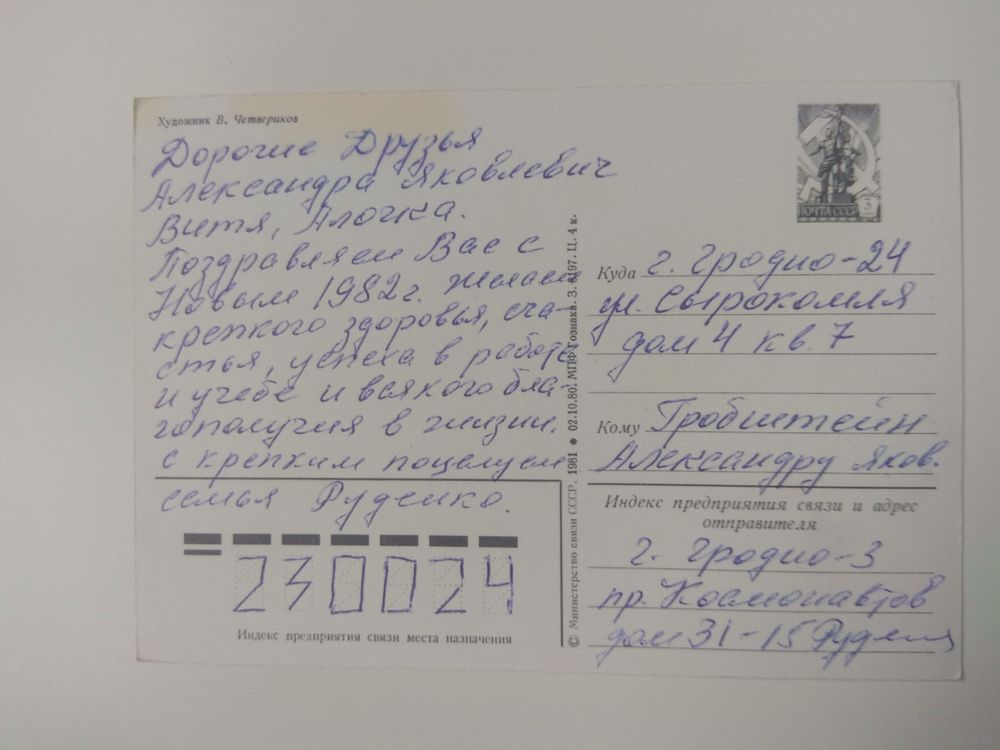 Художник В. Четвериков
Дорогие Друзья
Александра Яковлевич
Витя, Алочка.
Поздравляем Вас с
Новым 1982г. Желаем
крепкого здоровья, сча-
стья, успеха в работе
и учебе и всякого бла-
гополучия в жизни.
с крепким поцелуем
семья Руденко.
230024
Индекс предприятия связи места назначения
© Министерство связи СССР. 1981 ● 02.10.80. МПФ Гознака. З. 6197. Ц. 4 к.
ПОЧТА СССР 3
Куда г. Гродно-24
ул. Сырокомля
дом 4 кв. 7
Кому Гробштейн
Александру Яков.
Индекс предприятия связи и адрес
отправителя
г. Гродно-3
пр. Космонавтов
дом 31-15